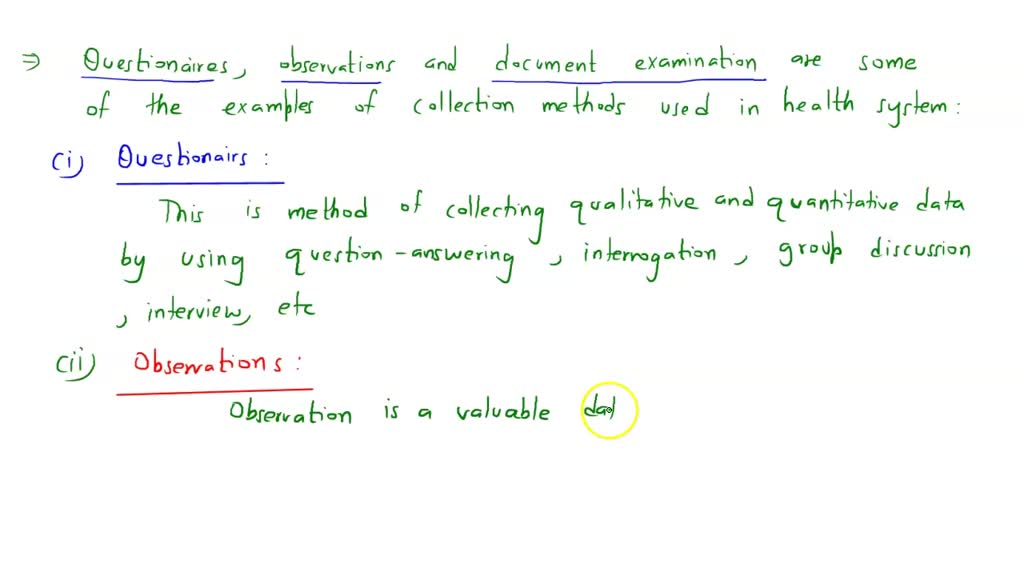 ⇒ Questionaires, observations and document examination are some
of the examples of collection methods used in health system:
(i) Questionairs:
This is method of collecting qualitative and quantitative data
by using question-answering, interrogation, group discussion
, interview, etc
(ii) Observations:
Observation is a valuable dat